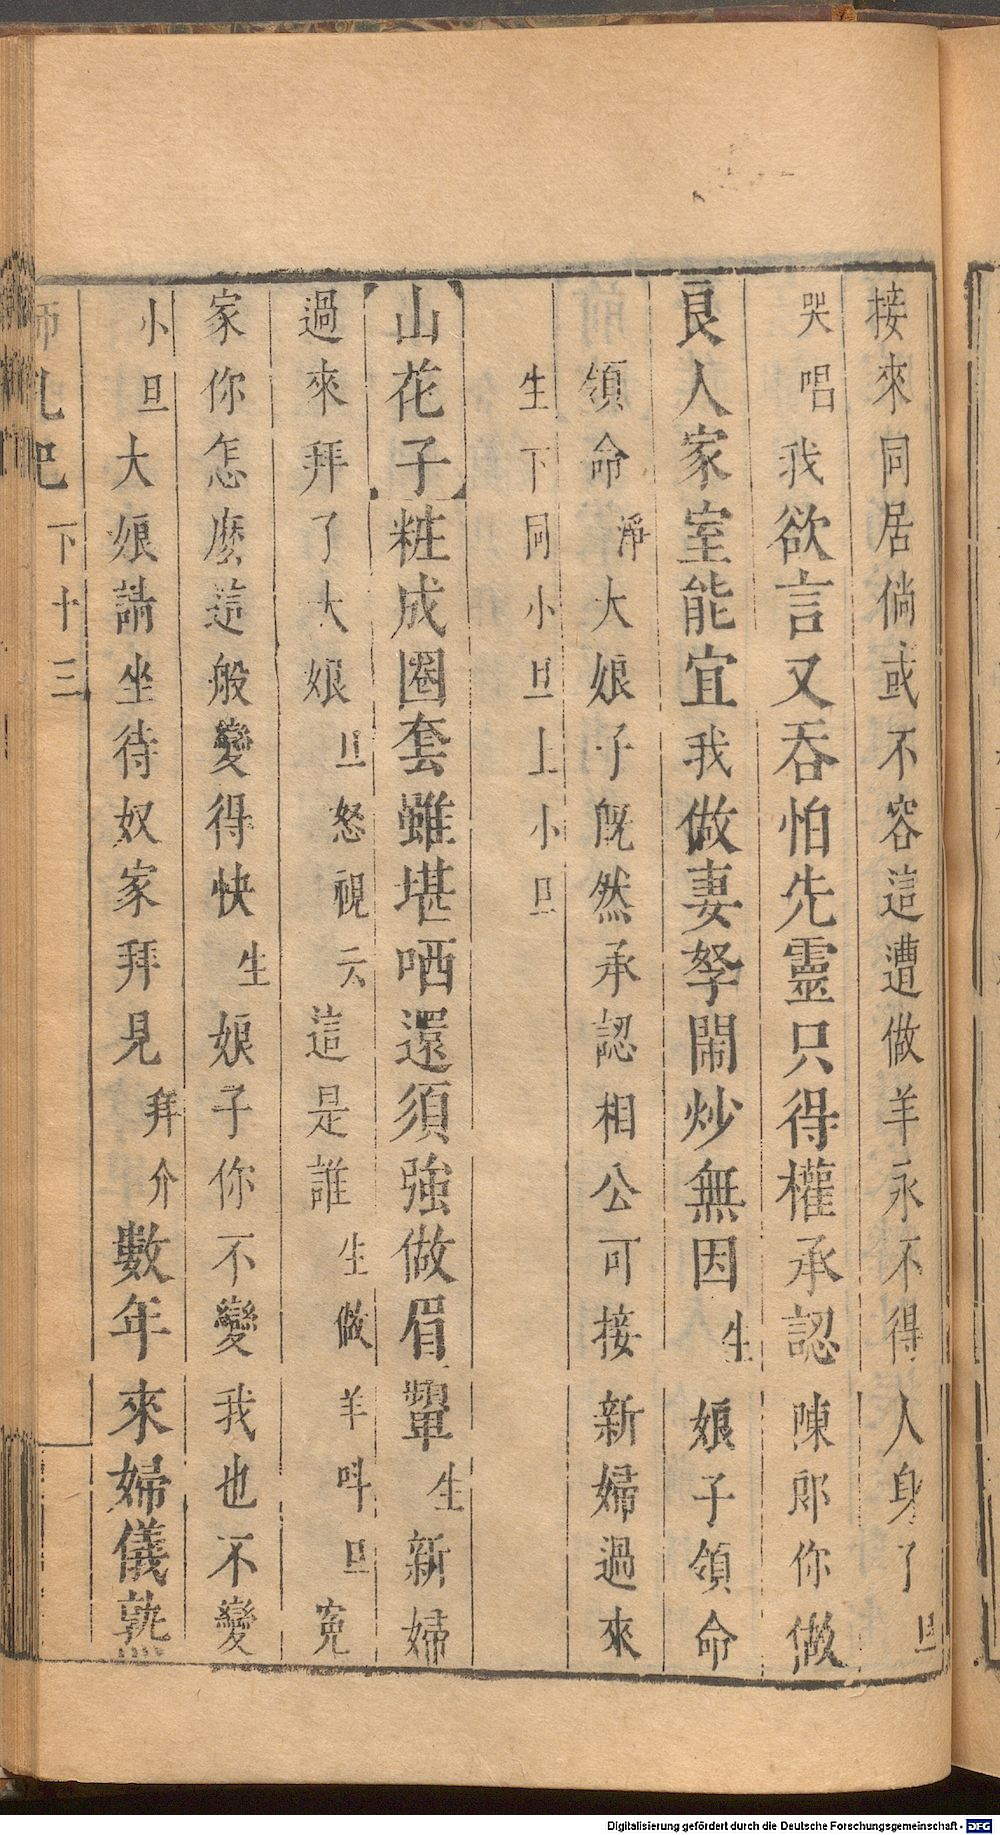 接來同居倘或不容這遭做羊永不得人身了旦
哭唱我欲言又吞怕先靈只得權承認陳郎你做
良人家室能宜我做妻孥鬧炒無因生娘子領命
領命淨大娘子既然承認相公可接新婦過來
生下同小旦上小旦
山花子粧成圈套雖堪哂還須強做眉顰生新婦
過來拜了大娘旦怒視云這是誰生做羊呌旦寃
家你怎麽這般變得快生娘子你不變我也不變
小旦大娘請坐待奴家拜見拜介數年來婦儀熟
師乳吧 下十三
Digitalisierung gefördert durch die Deutsche Forschungsgemeinschaft - DFG